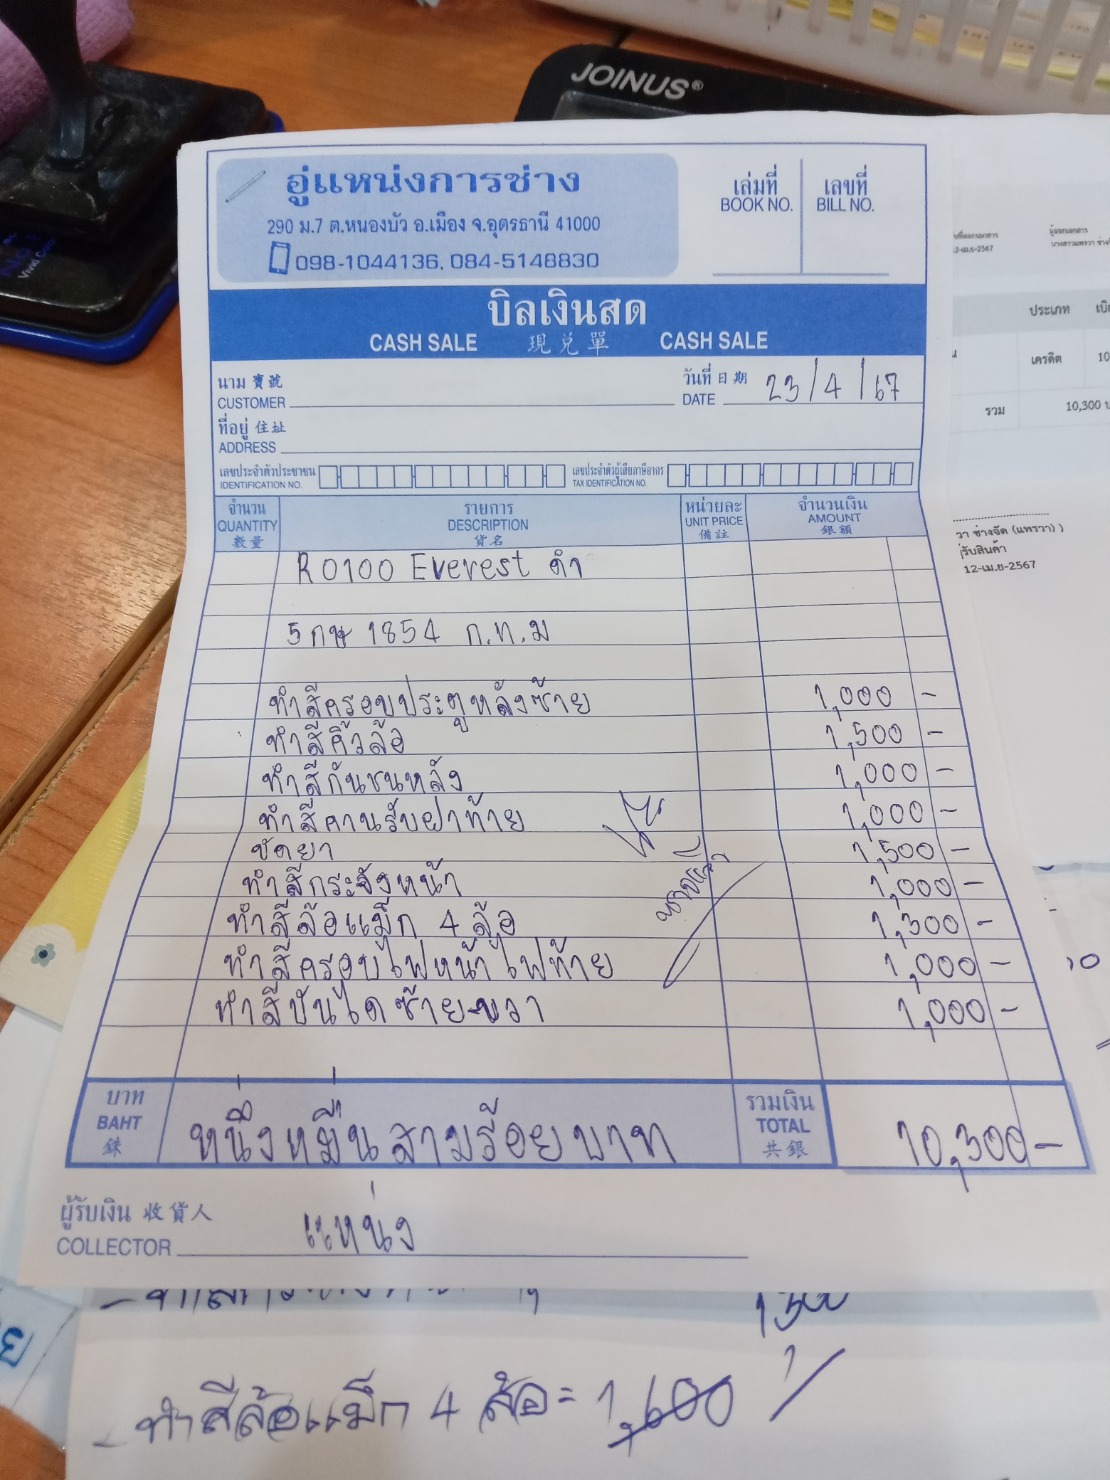 JOINUS®
อู่แหน่งการช่าง
290 ม.7 ต.หนองบัว อ.เมือง จ.อุดรธานี 41000
098-1044136, 084-5148830
เล่มที่
BOOK NO.
เลขที่
BILL NO.
บิลเงินสด
CASH SALE 現兌單 CASH SALE
นาม 寶號
CUSTOMER
วันที่ 日期
DATE 23/4/67
ที่อยู่ 住址
ADDRESS
เลขประจำตัวประชาชน
IDENTIFICATION NO.
เลขประจำตัวผู้เสียภาษีอากร
TAX IDENTIFICATION NO.
จำนวน
QUANTITY
數量
รายการ
DESCRIPTION
貨名
หน่วยละ
UNIT PRICE
備註
จำนวนเงิน
AMOUNT
銀額
R0100 Everest ดำ
5กษ 1854 ก.ท.ม
ทำสีครอบประตูหลังซ้าย 1,000 -
ทำสีคิ้วล้อ 1,500 -
ทำสีกันชนหลัง 1,000 -
ทำสีคานรับฝาท้าย 1,000 -
ขัดยา 1,500 -
ทำสีกระจังหน้า 1,000 -
ทำสีล้อแม็ก 4 ล้อ 1,300 -
ทำสีครอบไฟหน้าไฟท้าย 1,000 -
ทำสีบันไดซ้าย-ขวา 1,000 -
บาท
BAHT
銖
หนึ่งหมื่นสามร้อยบาท
รวมเงิน
TOTAL
共銀
10,300 -
ผู้รับเงิน 收貨人
COLLECTOR แหน่ง
ทำสีล้อแม็ก 4 ล้อ = 1,600
1,300
ผู้ออกเอกสาร
2-เม.ย-2567
ประเภท
เครดิต 10
รวม 10,300
วา ช่างจัด (แพรวา) )
รับสินค้า
12-เม.ย-2567